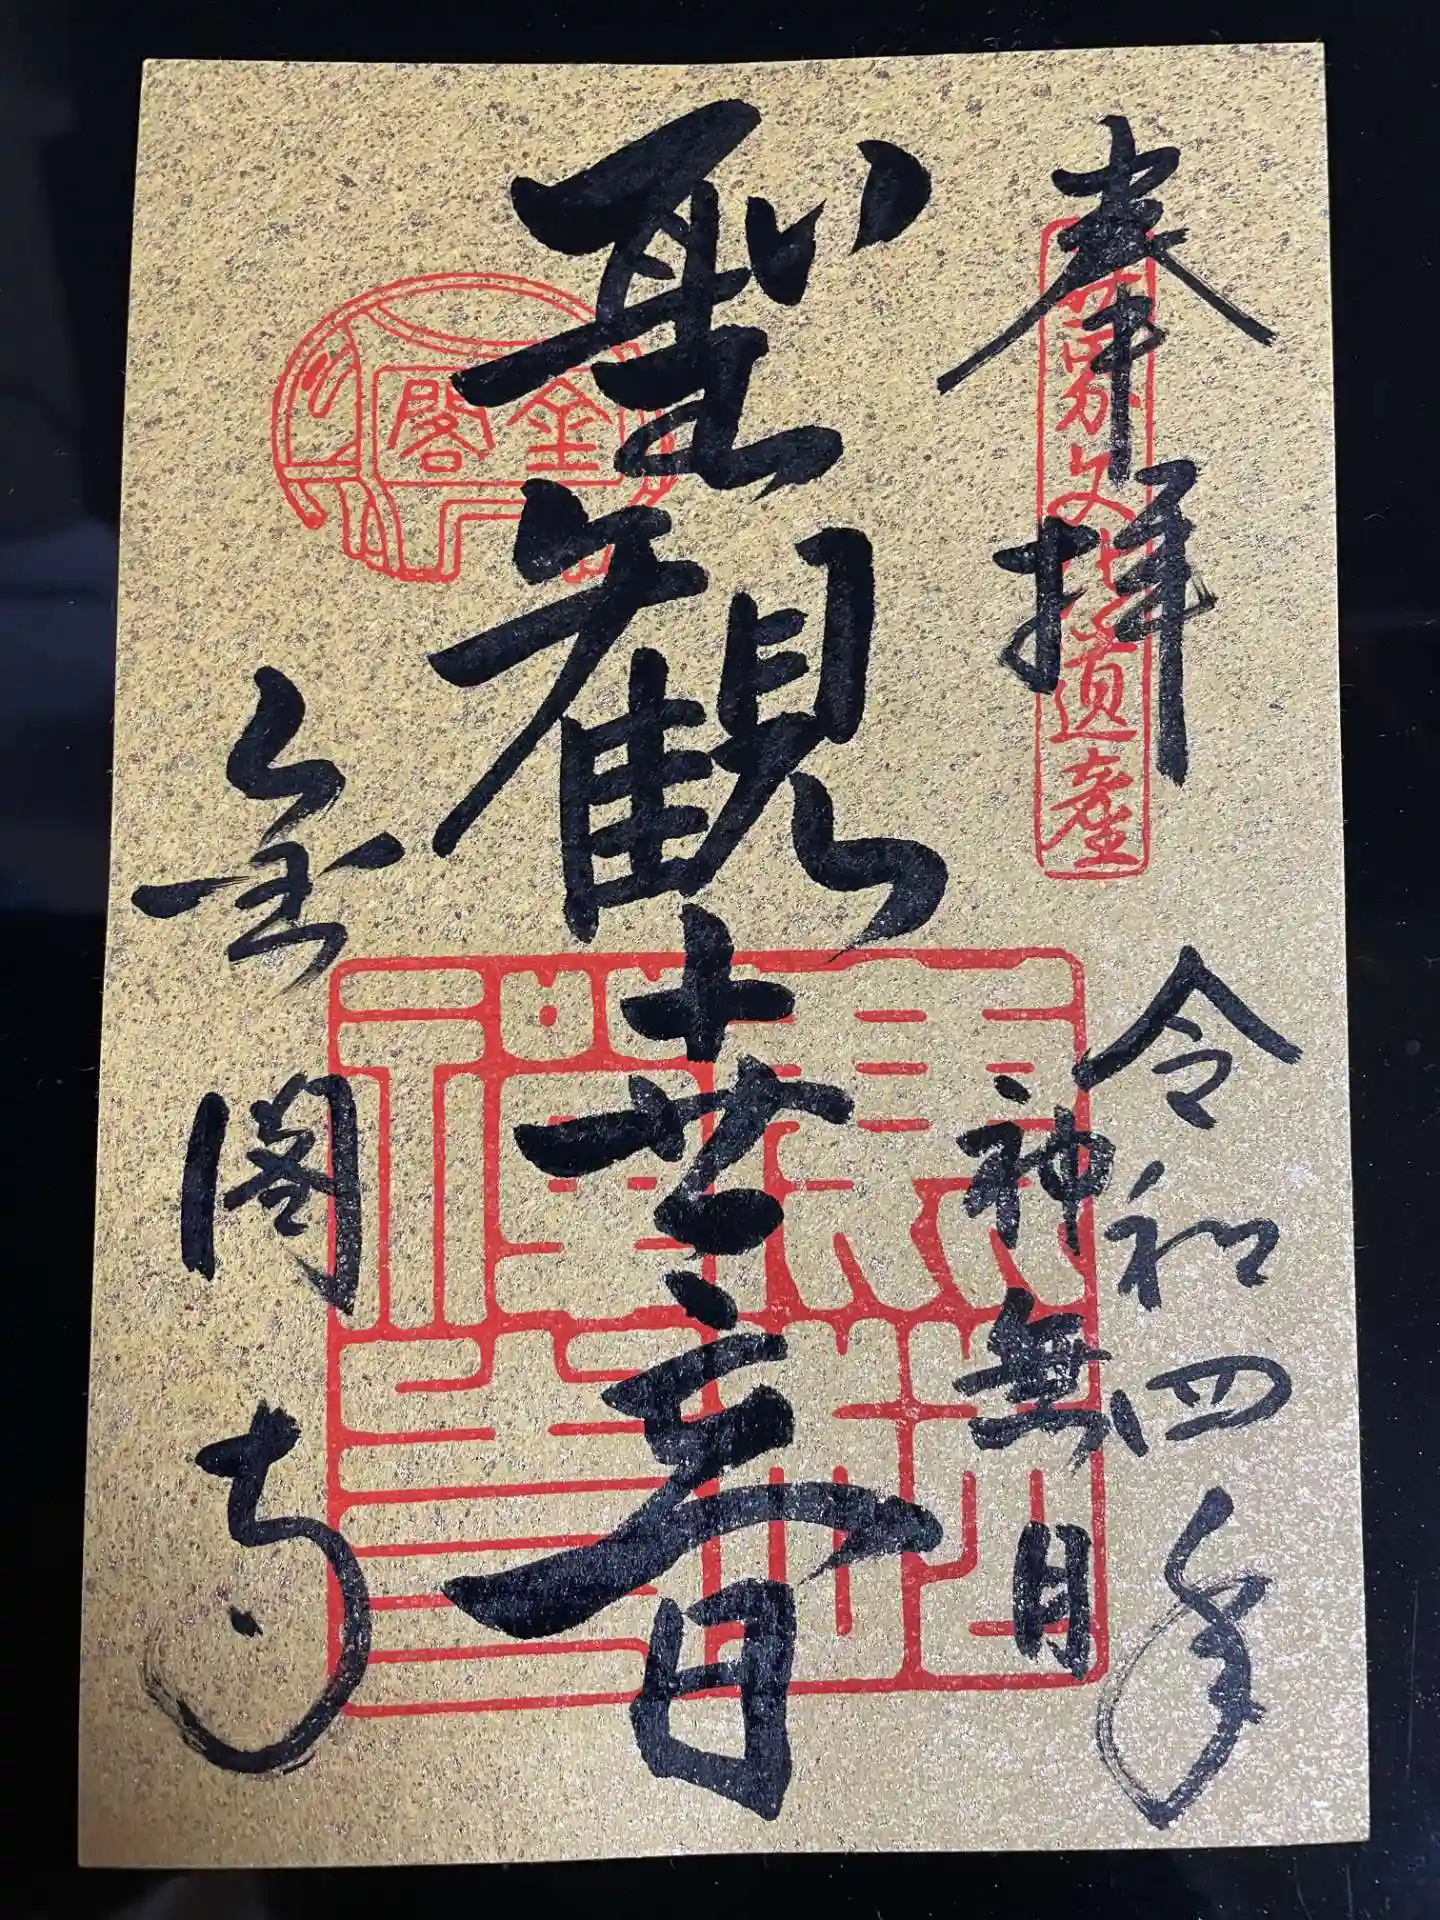 奉拝
世界文化遺産
令和四年
神無月
聖観世音
金閣
金閣寺